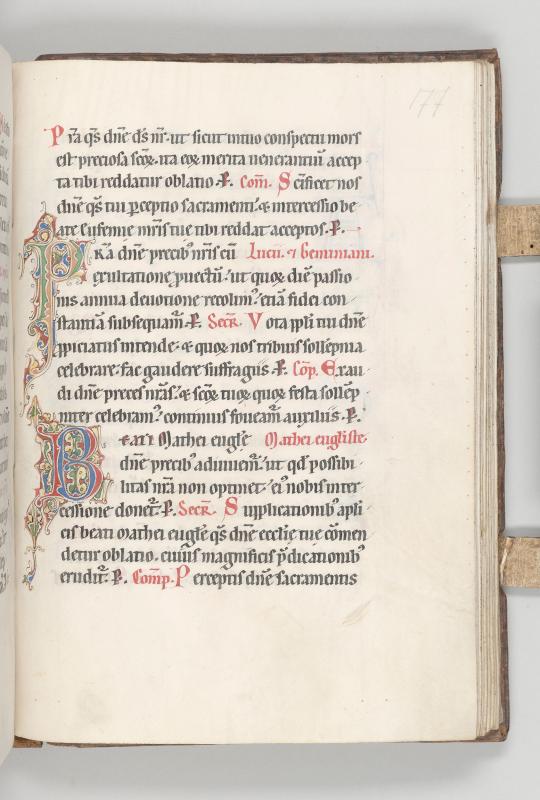 177
P r̄a qs̄ dn̄e ds̄ nr̄. ut sicut in tuo conspectu mors
est preciosa scōꝝ. ita eoꝝ merita uenerantiū accep
ta tibi reddatur oblatio. P. Com̄. S c̄ificet nos
dn̄e qs̄ tui ꝑceptio sacramenti. & intercessio be
ate eufemie mr̄is tue tibi reddat acceptos. P.
P R̄A dn̄e precib' nr̄is cū Lucii. & Geminiani.
exultatione ꝓuectū. ut quoꝝ die passio
nis annua deuotione recolim'. etiā fidei con
stantiā subsequam̄. P. Secr̄. V ota ppl̄i tui dn̄e
ꝓpiciatus intende. & quoꝝ nos tribuis sollēpnia
celebrare. fac gaudere suffragiis. P. Com̄p. E xau
di dn̄e preces nr̄as. & scōꝝ tuoꝝ quoꝝ festa sollēp
niter celebram'. continuis foueam̄ auxiliis. P.
B eati Mathei eugl̄e Mathei eugl̄iste.
dn̄e precib' adiuuem̄. ut qd̄ possibi
litas nr̄a non optinet. ei' nobis inter
cessione donet̄. P. Secr̄. S upplicationib' apl̄i
cis beati Mathei eugl̄e qs̄ dn̄e eccl̄ie tue cōmen
detur oblatio. cuius magnificis p̄dicationib'
erudit̄. P. Com̄p. P erceptis dn̄e sacramentis